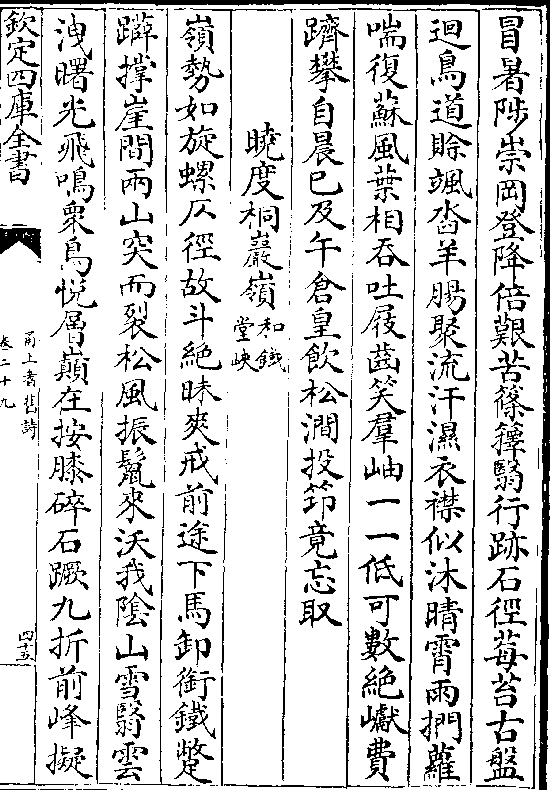 冒暑陟崇岡登降倍艱苦篠簜翳行跡石徑莓苔古盤
迴鳥道賒颯沓羊腸聚流汗濕衣襟似沐晴霄雨捫蘿
喘復蘇風葉相吞吐屐齒笑羣岫一一低可數絶巘費
躋攀自晨已及午倉皇飲松澗投笻竟忘取
曉度桐巖嶺和鐵堂峽
嶺勢如旋螺仄徑故斗絶昧爽戒前途下馬卸銜鐵蹩
躃撐崖間兩山突而裂松風振鬣來沃我陰山雪翳雲
洩曙光飛鳴衆鳥悦層巔在按膝碎石蹶九折前峰擬
欽定四庫全書
甬上耆舊詩
卷二十九
四十五